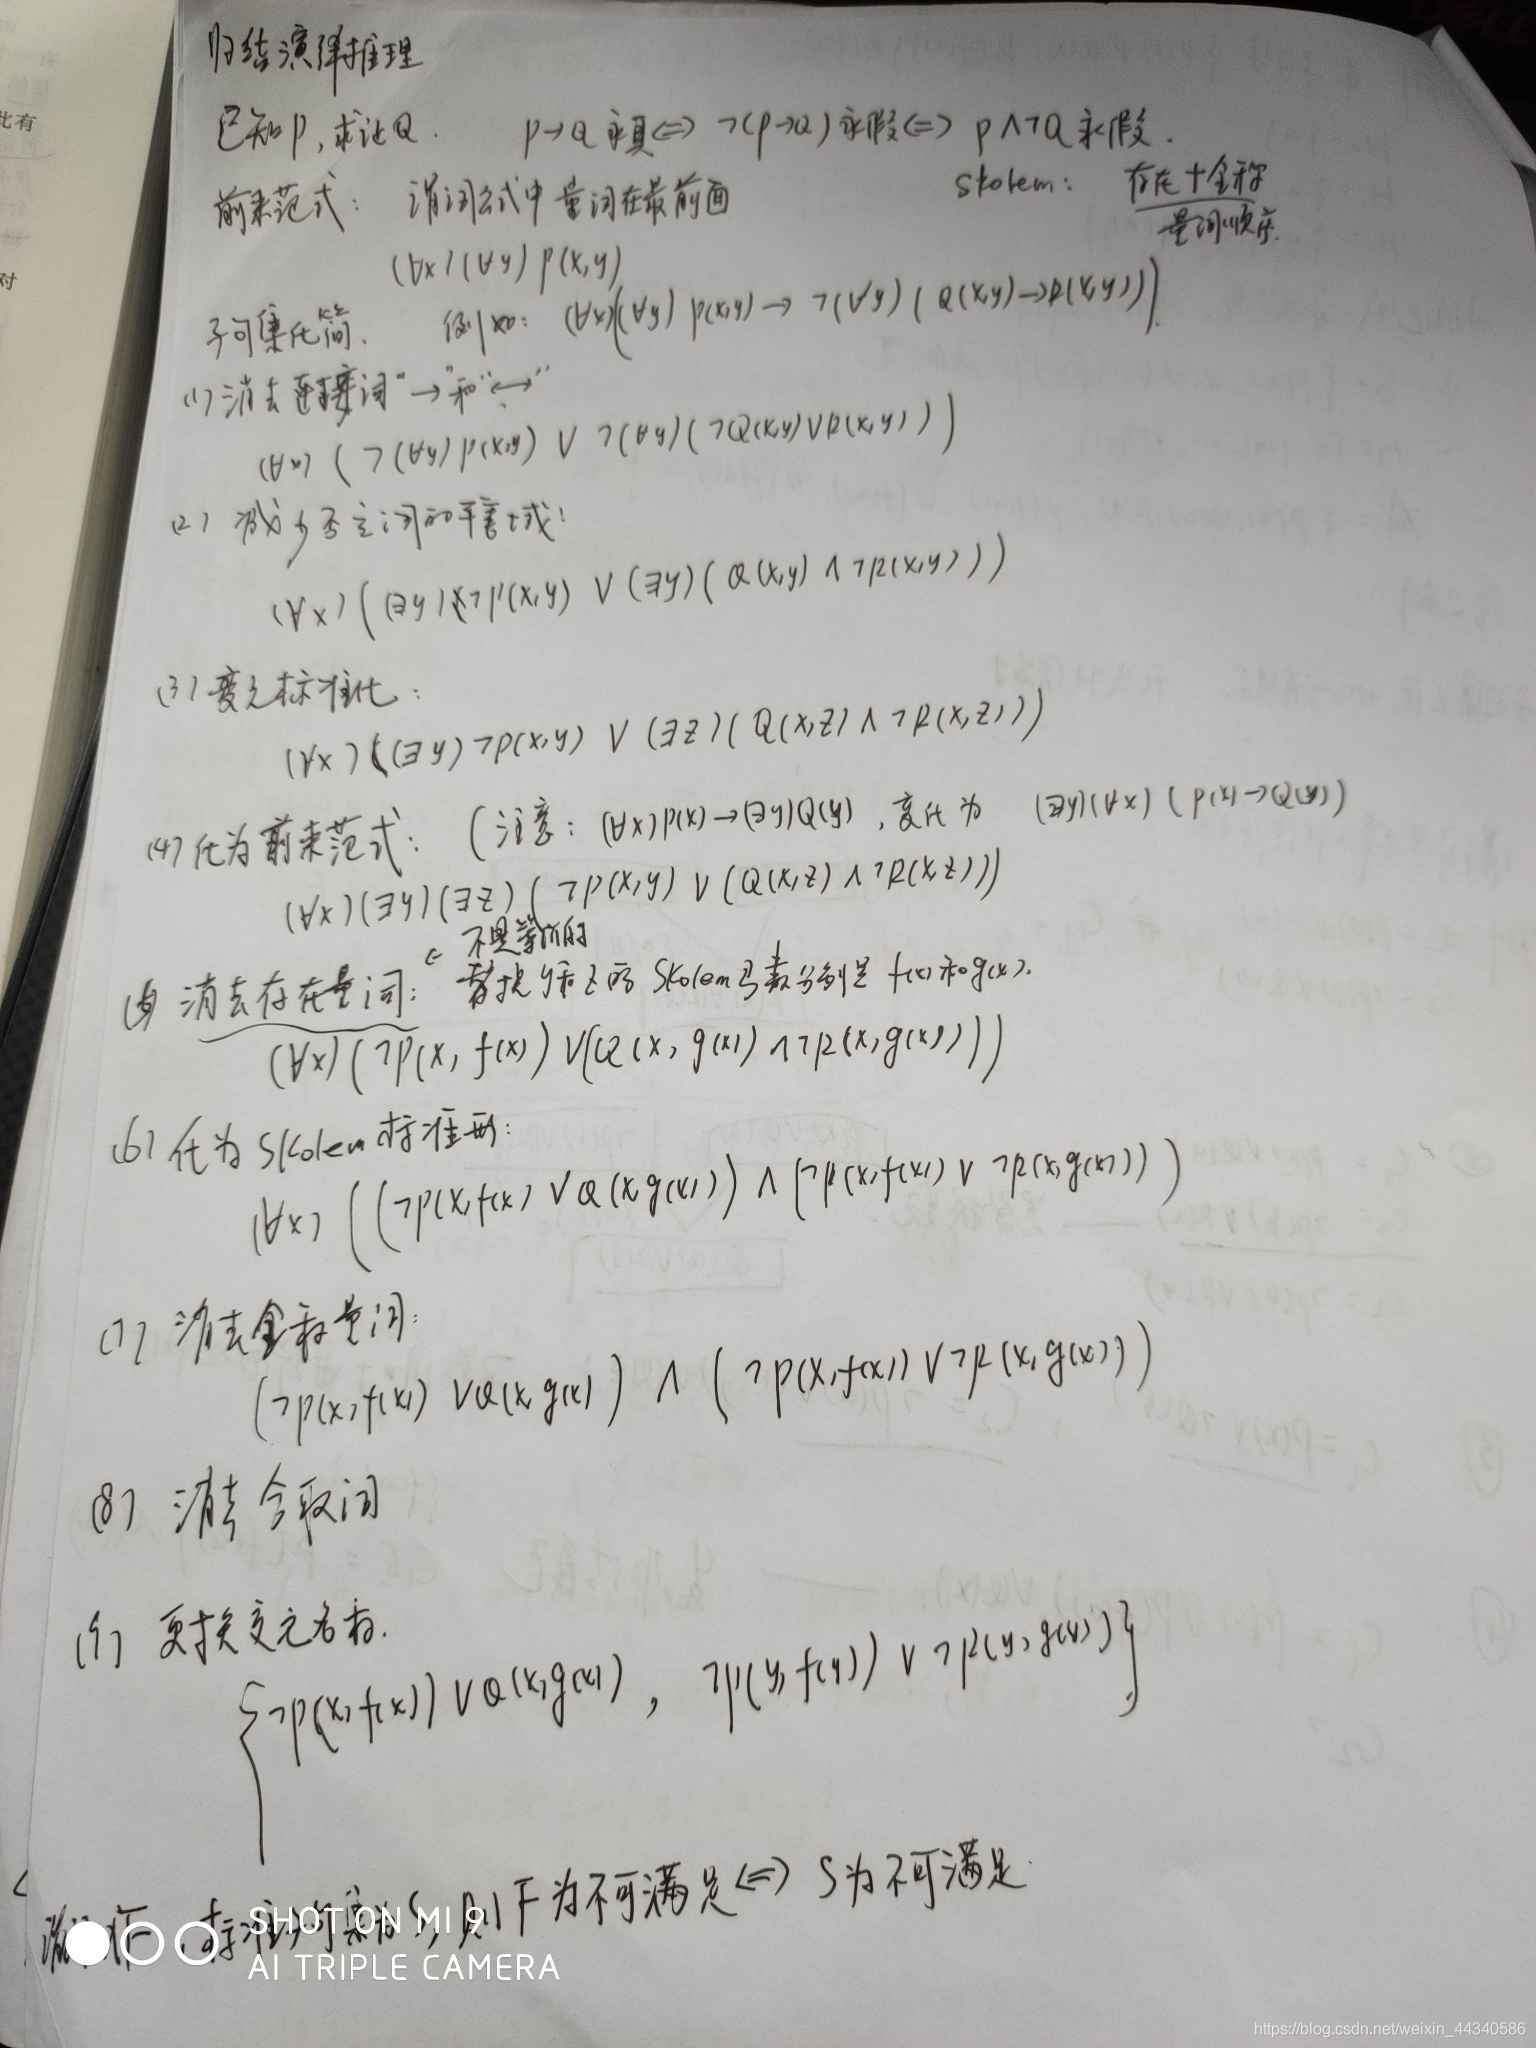 比有
对
归结演绎推理
已知P,求证Q. P→Q永真⇔¬(P→Q)永假⇔ P∧¬Q永假.
前束范式: 谓词公式中量词在最前面 Skolem: 存在+全称
量词顺序.
(∀x)(∀y) P(x,y)
子句集化简. 例如: (∀x)((∀y) P(x,y)→ ¬(∀y)(Q(x,y)→R(x,y)))
(1)消去连接词"→"和"↔"
(∀x) (¬(∀y)P(x,y) ∨ ¬(∀y)(¬Q(x,y)∨R(x,y)))
(2) 减少否定词的辖域:
(∀x)((∃y)¬P(x,y) ∨(∃y)(Q(x,y) ∧¬R(x,y)))
(3)变元标准化:
(∀x)((∃y)¬P(x,y) ∨ (∃z)(Q(x,z)∧¬R(x,z)))
(4)化为前束范式: (注意: (∀x)P(x)→(∃y)Q(y),变化为 (∃y)(∀x)(P(x)→Q(y))
(∀x)(∃y)(∃z)(¬P(x,y) ∨(Q(x,z)∧¬R(x,z)))
← 不是等价的
(5) 消去存在量词: 替换y和z的Skolem函数分别是 f(x)和g(x).
(∀x)(¬P(x, f(x)) ∨(Q(x, g(x)) ∧¬R(x,g(x))))
(6)化为Skolem标准型:
(∀x) ((¬P(x,f(x) ∨Q(x,g(x))) ∧(¬P(x,f(x)) ∨ ¬R(x,g(x))))
(7) 消去全称量词:
(¬P(x,f(x)) ∨Q(x,g(x)) ∧ (¬P(x,f(x)) ∨¬R(x,g(x)))
(8) 消去合取词
(9) 更换变元名称.
{¬P(x,f(x)) ∨Q(x,g(x)), ¬P(y,f(y)) ∨¬R(y,g(y))}
F,标准子句集为S,则F为不可满足⇔S为不可满足.
SHOT ON MI 9
AI TRIPLE CAMERA
https://blog.csdn.net/weixin_44340586